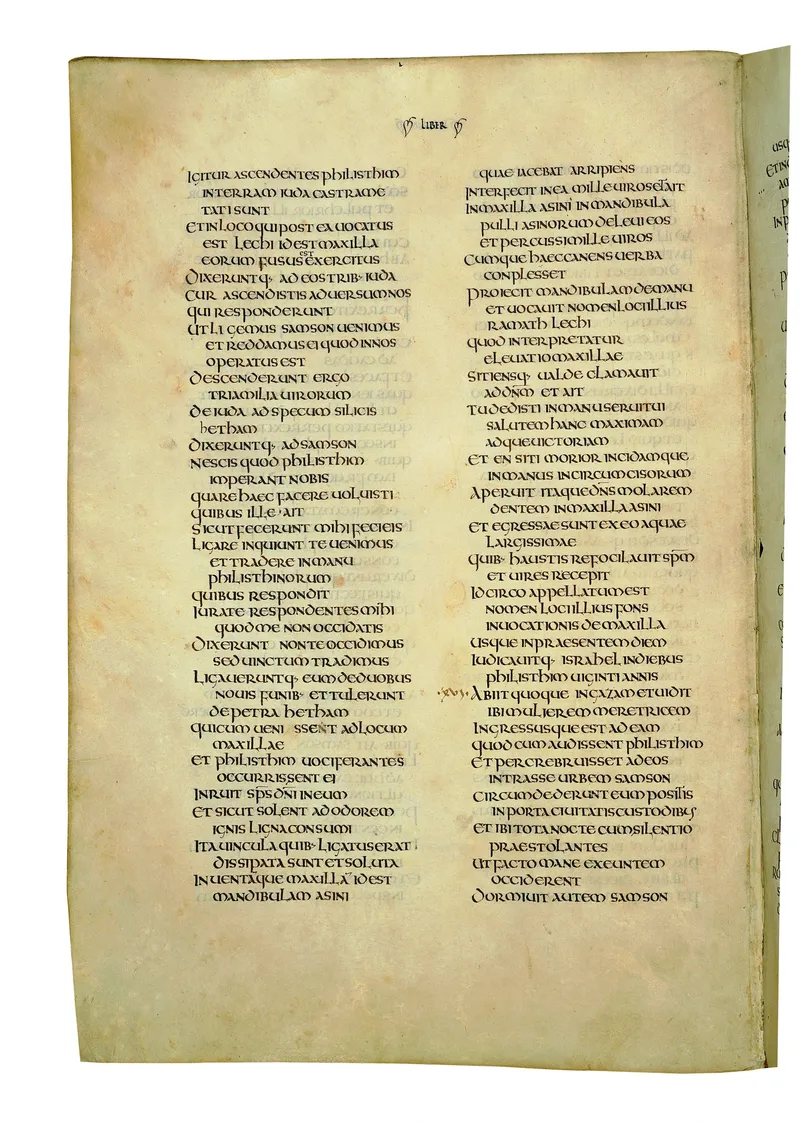 LIBER
IGITUR ASCENDENTES PHILISTHIM
INTERRAM IUDA CASTRAME
TATI SUNT
ET IN LOCO QUI POST EA UOCATUS
EST LECHI ID EST MAXILLA
EORUM FUSUS EST EXERCITUS
DIXERUNTQ· AD EOS TRIB· IUDA
CUR ASCENDISTIS ADUERSUM NOS
QUI RESPONDERUNT
UT LIGEMUS SAMSON UENIMUS
ET REDDAMUS EI QUOD IN NOS
OPERATUS EST
DESCENDERUNT ERGO
TRIA MILIA UIRORUM
DE IUDA AD SPECUM SILICIS
HETHAM
DIXERUNTQ· AD SAMSON
NESCIS QUOD PHILISTHIM
IMPERANT NOBIS
QUARE HAEC FACERE UOLUISTI
QUIBUS ILLE AIT
SICUT FECERUNT MIHI FECI EIS
LIGARE INQUIUNT TE UENIMUS
ET TRADERE IN MANU
PHILISTHINORUM
QUIBUS RESPONDIT
IURATE RESPONDENTES MIHI
QUOD ME NON OCCIDATIS
DIXERUNT NON TE OCCIDIMUS
SED UINCTUM TRADIMUS
LIGAUERUNTQ· EUM DE DUOBUS
NOUIS FUNIB· ET TULERUNT
DE PETRA HETHAM
QUI CUM UENI SSENT AD LOCUM
MAXILLAE
ET PHILISTHIM UOCIFERANTES
OCCURRISSENT EI
INRUIT SPS DNI IN EUM
ET SICUT SOLENT AD ODOREM
IGNIS LIGNA CONSUMI
ITA UINCULA QUIB· LIGATUS ERAT
DISSIPATA SUNT ET SOLUTA
INUENTAQUE MAXILLA ID EST
MANDIBULAM ASINI
QUAE IACEBAT ARRIPIENS
INTERFECIT IN EA MILLE UIROS ET AIT
IN MAXILLA ASINI IN MANDIBULA
PULLI ASINORUM DELEUI EOS
ET PERCUSSI MILLE UIROS
CUMQUE HAEC CANENS UERBA
CONPLESSET
PROIECIT MANDIBULAM DE MANU
ET UOCAUIT NOMEN LOCI ILLIUS
RAMATH LECHI
QUOD INTERPRETATUR
ELEUATIO MAXILLAE
SITIENSQ· UALDE CLAMAUIT
AD DNM ET AIT
TU DEDISTI IN MANU SERUI TUI
SALUTEM HANC MAXIMAM
ADQUE UICTORIAM
ET EN SITI MORIOR INCIDAMQUE
IN MANUS INCIRCUMCISORUM
APERUIT ITAQUE DNS MOLAREM
DENTEM IN MAXILLA ASINI
ET EGRESSAE SUNT EX EO AQUAE
LARGISSIMAE
QUIB· HAUSTIS REFOCILAUIT SPM
ET UIRES RECEPIT
IDCIRCO APPELLATUM EST
NOMEN LOCI ILLIUS FONS
INUOCATIONIS DE MAXILLA
USQUE IN PRAESENTEM DIEM
IUDICAUITQ· ISRAHEL IN DIEBUS
PHILISTHIM UIGINTI ANNIS
ABIIT QUOQUE IN GAZAM ET UIDIT
IBI MULIEREM MERETRICEM
INGRESSUSQUE EST AD EAM
QUOD CUM AUDISSENT PHILISTHIM
ET PERCREBRUISSET AD EOS
INTRASSE URBEM SAMSON
CIRCUMDEDERUNT EUM POSITIS
IN PORTA CIUITATIS CUSTODIBUS
ET IBI TOTA NOCTE CUM SILENTIO
PRAESTOLANTES
UT FACTO MANE EXEUNTEM
OCCIDERENT
DORMIUIT AUTEM SAMSON